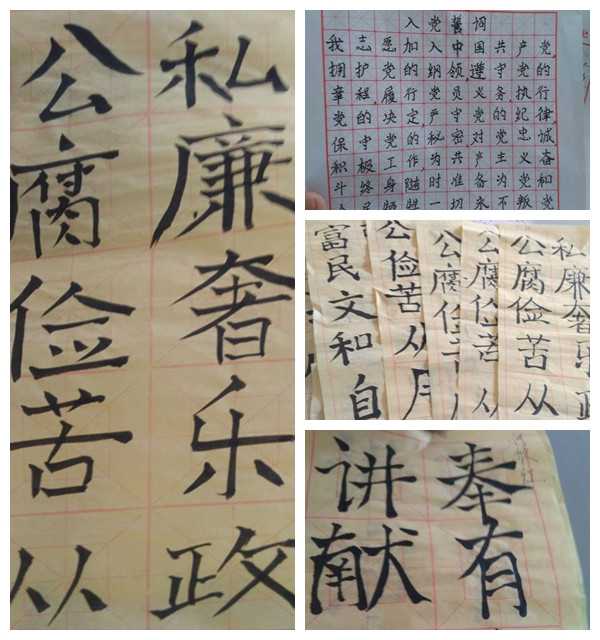 公私
腐廉
俭奢
苦乐
从政
入党誓词
我志愿加入中国共产党,
拥护党的纲领,遵守党的
章程,履行党员义务,执行
党的决定,严守党的纪律,
保守党的秘密,对党忠诚
积极工作,为共产主义奋
斗终身,随时准备为党和
人民牺牲一切永不叛党
富民文和自
公俭苦从
公腐俭
公腐俭苦从
公私
腐廉
俭奢
苦乐
从政
讲奉
献有